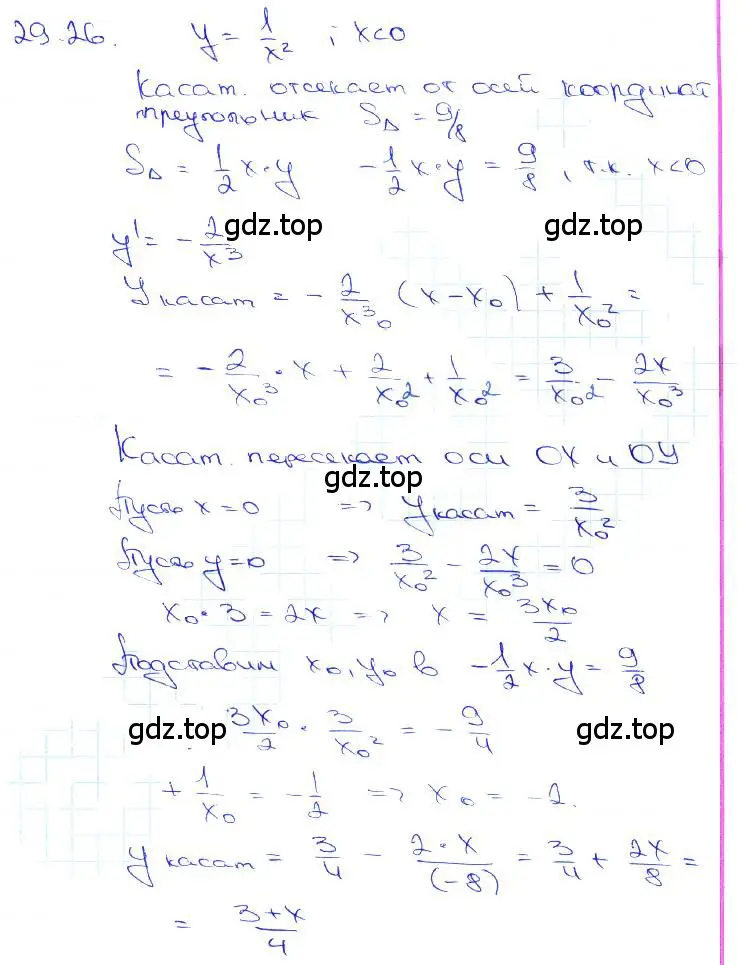 29.26. y = 1/x² ; x<0
Касат. отсекает от осей координат
треугольник S△ = 9/8
S△ = 1/2 x·y -1/2 x·y = 9/8, т.к. x<0
y' = -2/x³
gdz.top gdz.top
yкасат = -2/x₀³ (x-x₀) + 1/x₀² =
= -2/x₀³ · x + 2/x₀² + 1/x₀² = 3/x₀² - 2x/x₀³
Касат. пересекает оси OX и OY
gdz.top
Пусть x=0 => yкасат = 3/x₀²
Пусть y=0 => 3/x₀² - 2x/x₀³ = 0
x₀·3 = 2x => x = 3x₀/2
Подставим x₀, y₀ в -1/2 x·y = 9/8
3x₀/2 · 3/x₀² = -9/4
gdz.top gdz.top
+ 1/x₀ = -1/2 => x₀ = -2.
yкасат = 3/4 - 2·x/(-8) = 3/4 + 2x/8 =
= 3+x/4